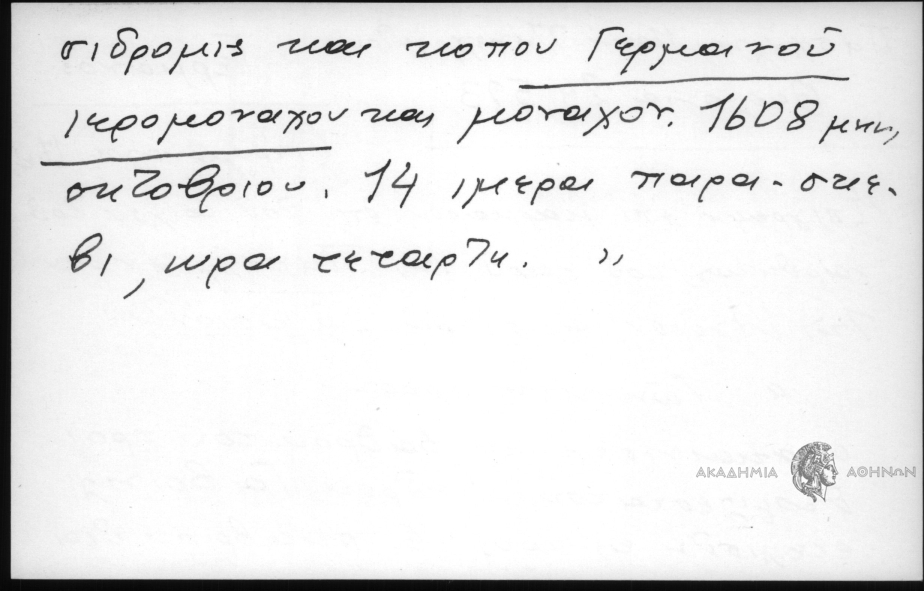 σιδρομις και κοπου Γερμανού
ιερομοναχου και μοναχον. 1608 μηνι,
οκτοβριου. 14 ιμερα παρα-σκε-
βι, ωρα τεταρτη. "
ΑΚΑΔΗΜΙΑ ΑΘΗΝΩΝ